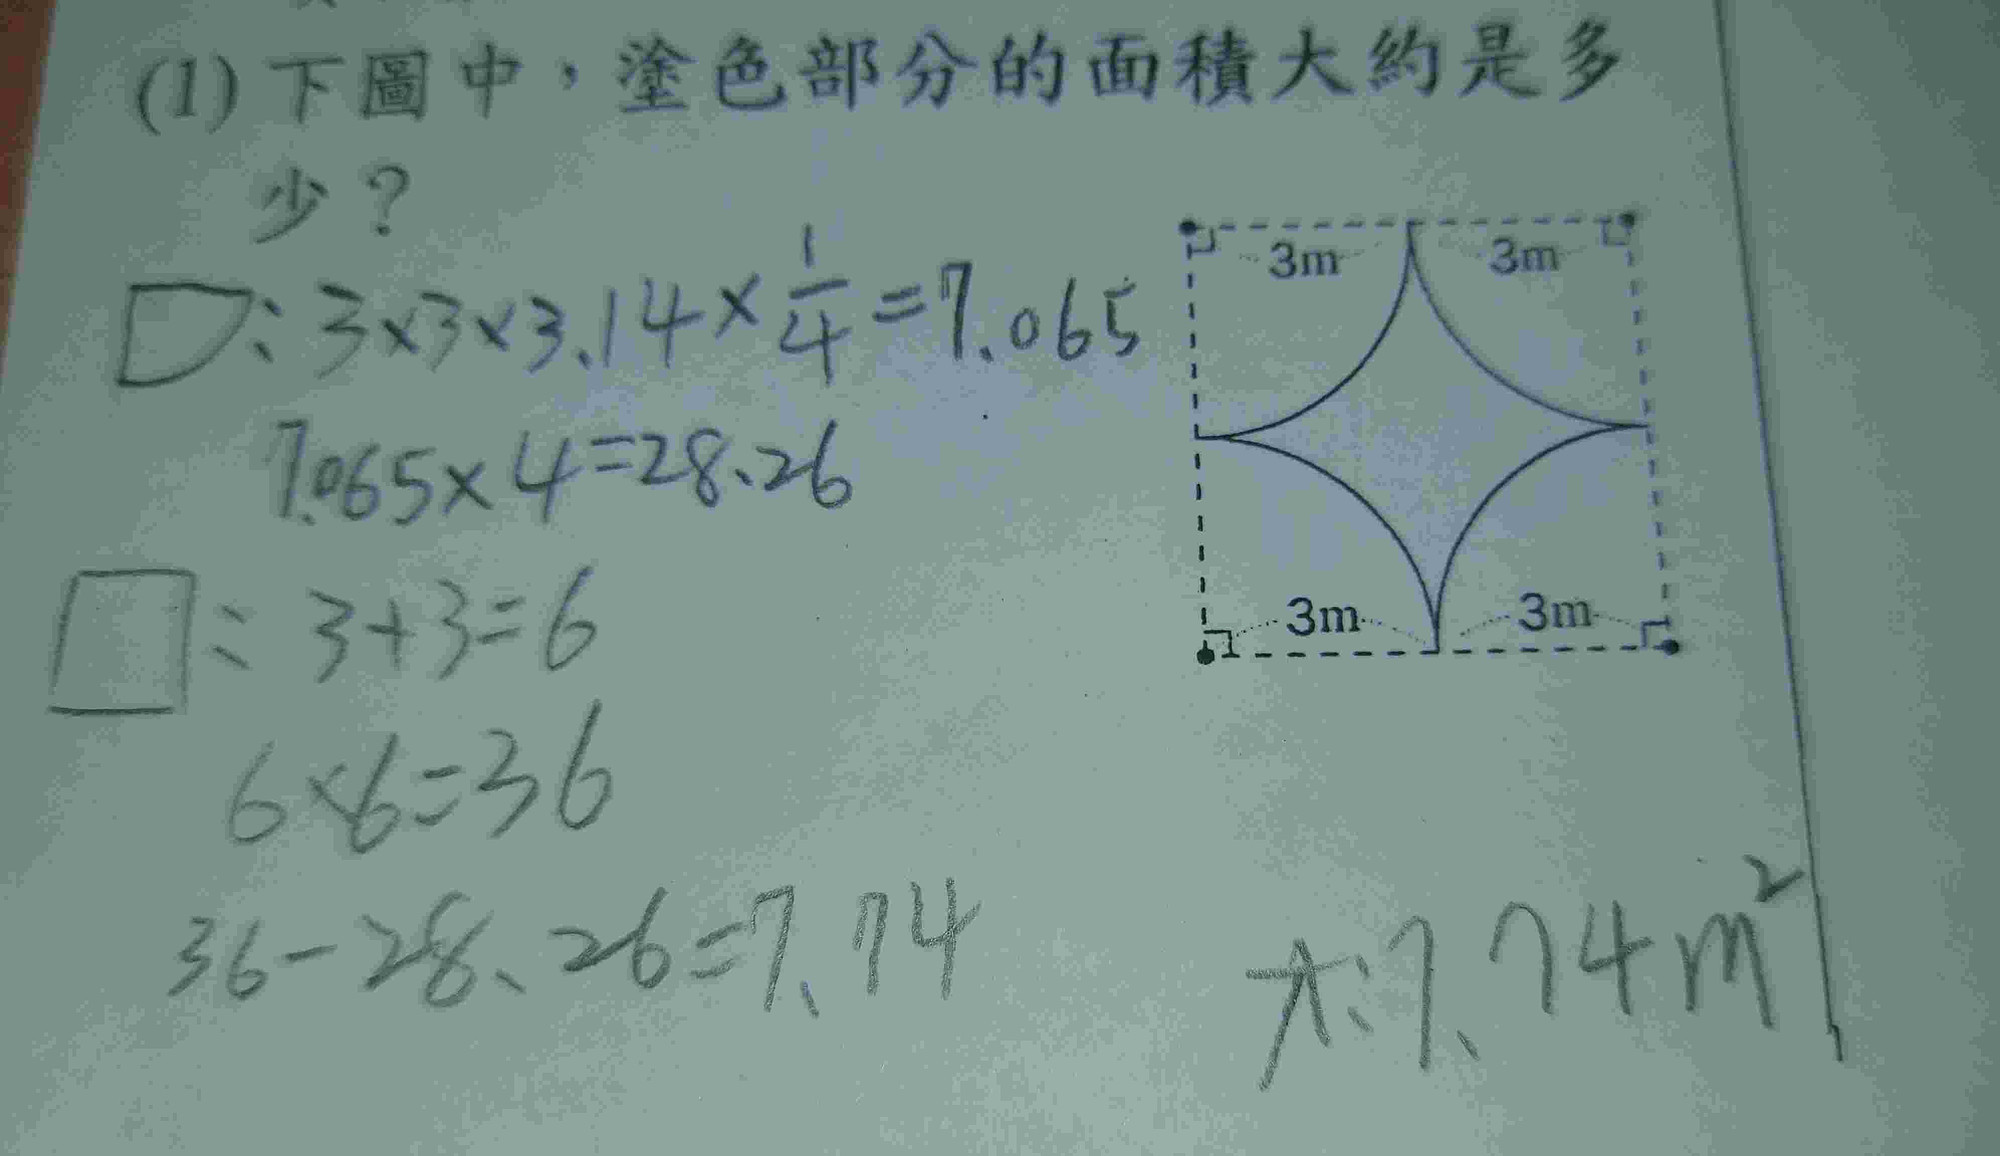 (1) 下圖中，塗色部分的面積大約是多
少？
: 3×3×3.14×1/4=7.065
7.065×4=28.26
: 3+3=6
6×6=36
36-28.26=7.74
3m 3m
3m 3m
A:7.74m²